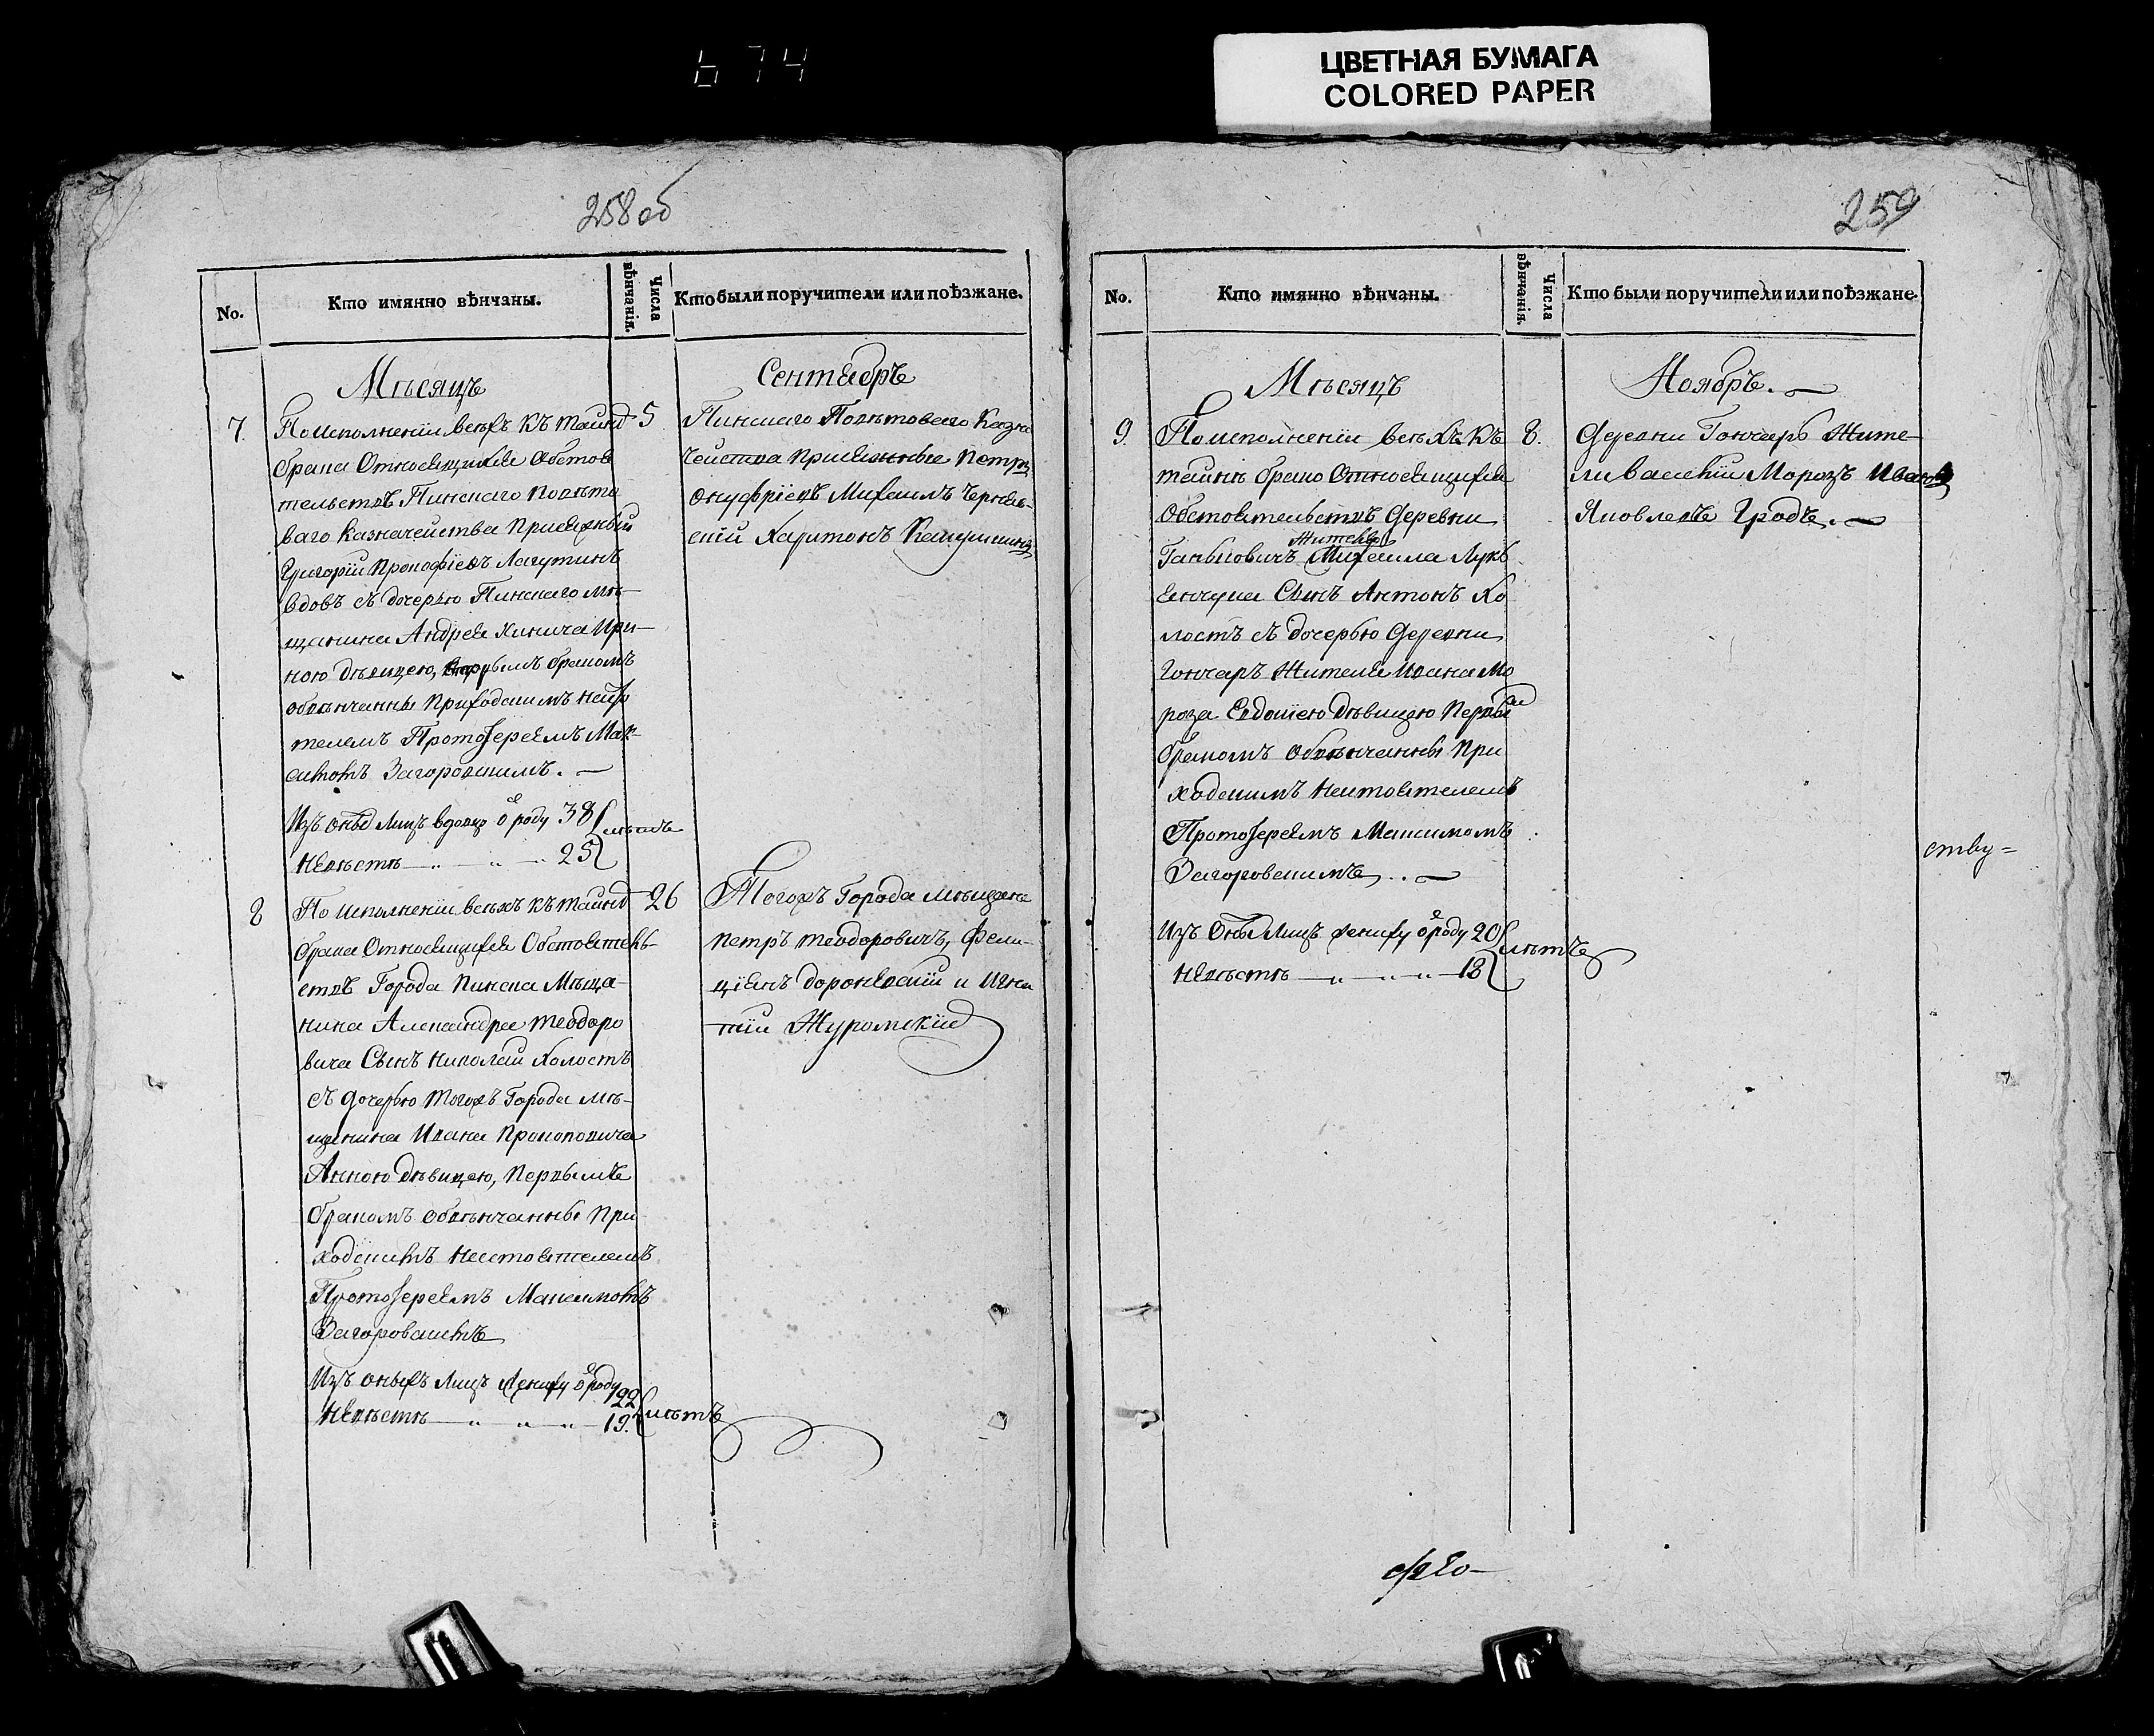 674
ЦВЕТНАЯ БУМАГА
COLORED PAPER
258 об
No.
Кто имянно вѣнчаны.
Числа вѣнчанія.
Кто были поручители или поѣзжане.
Мѣсяцъ
Сентябрь
7.
По исполненіи всѣхъ къ таинст
5
брака Относящихся Обстоя
тельствъ Пинскаго повѣто
ваго Казначейства Присяжный
Григорій Прокофіевъ Лагутинъ
вдовъ съ дочерью Пинскаго мѣ-
щанина Андрея Хинича Ири-
ною дѣвицею, вторымъ бракомъ
обвѣнчанны Приходскимъ наст
телемъ Протоіереемъ Мак-
симомъ Загоровскимъ.
Изъ оныхъ лицъ вдовцу ѿ роду 38
лѣтъ
Невѣстѣ 25
Пинскаго Повѣтоваго Казна
чейства присяжные Петръ
онуфріевъ Михаилъ Черняв-
скій Харитонъ
8
По исполненіи всѣхъ къ таинст
26
брака Относящихся Обстоятель-
ствъ Города Пинска Мѣща-
нина Александра Теодоро
вича Сынъ Николай Холостъ
съ дочерью тогожъ Города мѣ-
щанина Ивана Прокоповича
Анною дѣвицею, первымъ
бракомъ обвѣнчанны При
ходскимъ Настоятелемъ
Протоіереемъ Максимомъ
Загоровскимъ
Изъ оныхъ лицъ жениху ѿ роду 22
лѣтъ
Невѣстѣ 19.
Тогожъ Города мѣщане
Петръ теодоровичъ, Фели-
ціянъ доронскій и Игна
тій Журомскій
259
No.
Кто имянно вѣнчаны.
Числа вѣнчанія.
Кто были поручители или поѣзжане.
Мѣсяцъ
Ноябрь.
9.
По исполненіи всѣхъ къ
8.
таинѣ брака Относящихся
Обстоятельствъ Деревни
Житель
Ганьковичъ Михаила Лукь
янчука Сынъ Антонъ Хо
лостъ съ дочерью Деревни
Гончаръ Жителя Ивана Мо
роза Евдокіею дѣвицею Первымъ
бракомъ Обвѣнчанны При
ходскимъ Настоятелемъ
Протоіереемъ Максимомъ
Загоровскимъ
Изъ Оныхъ Лицъ жениху ѿ роду 20
лѣтъ
Невѣстѣ 18
Деревни Гончаръ Жите-
ли Василій Морозъ Иванъ
Яковлевъ
ству=